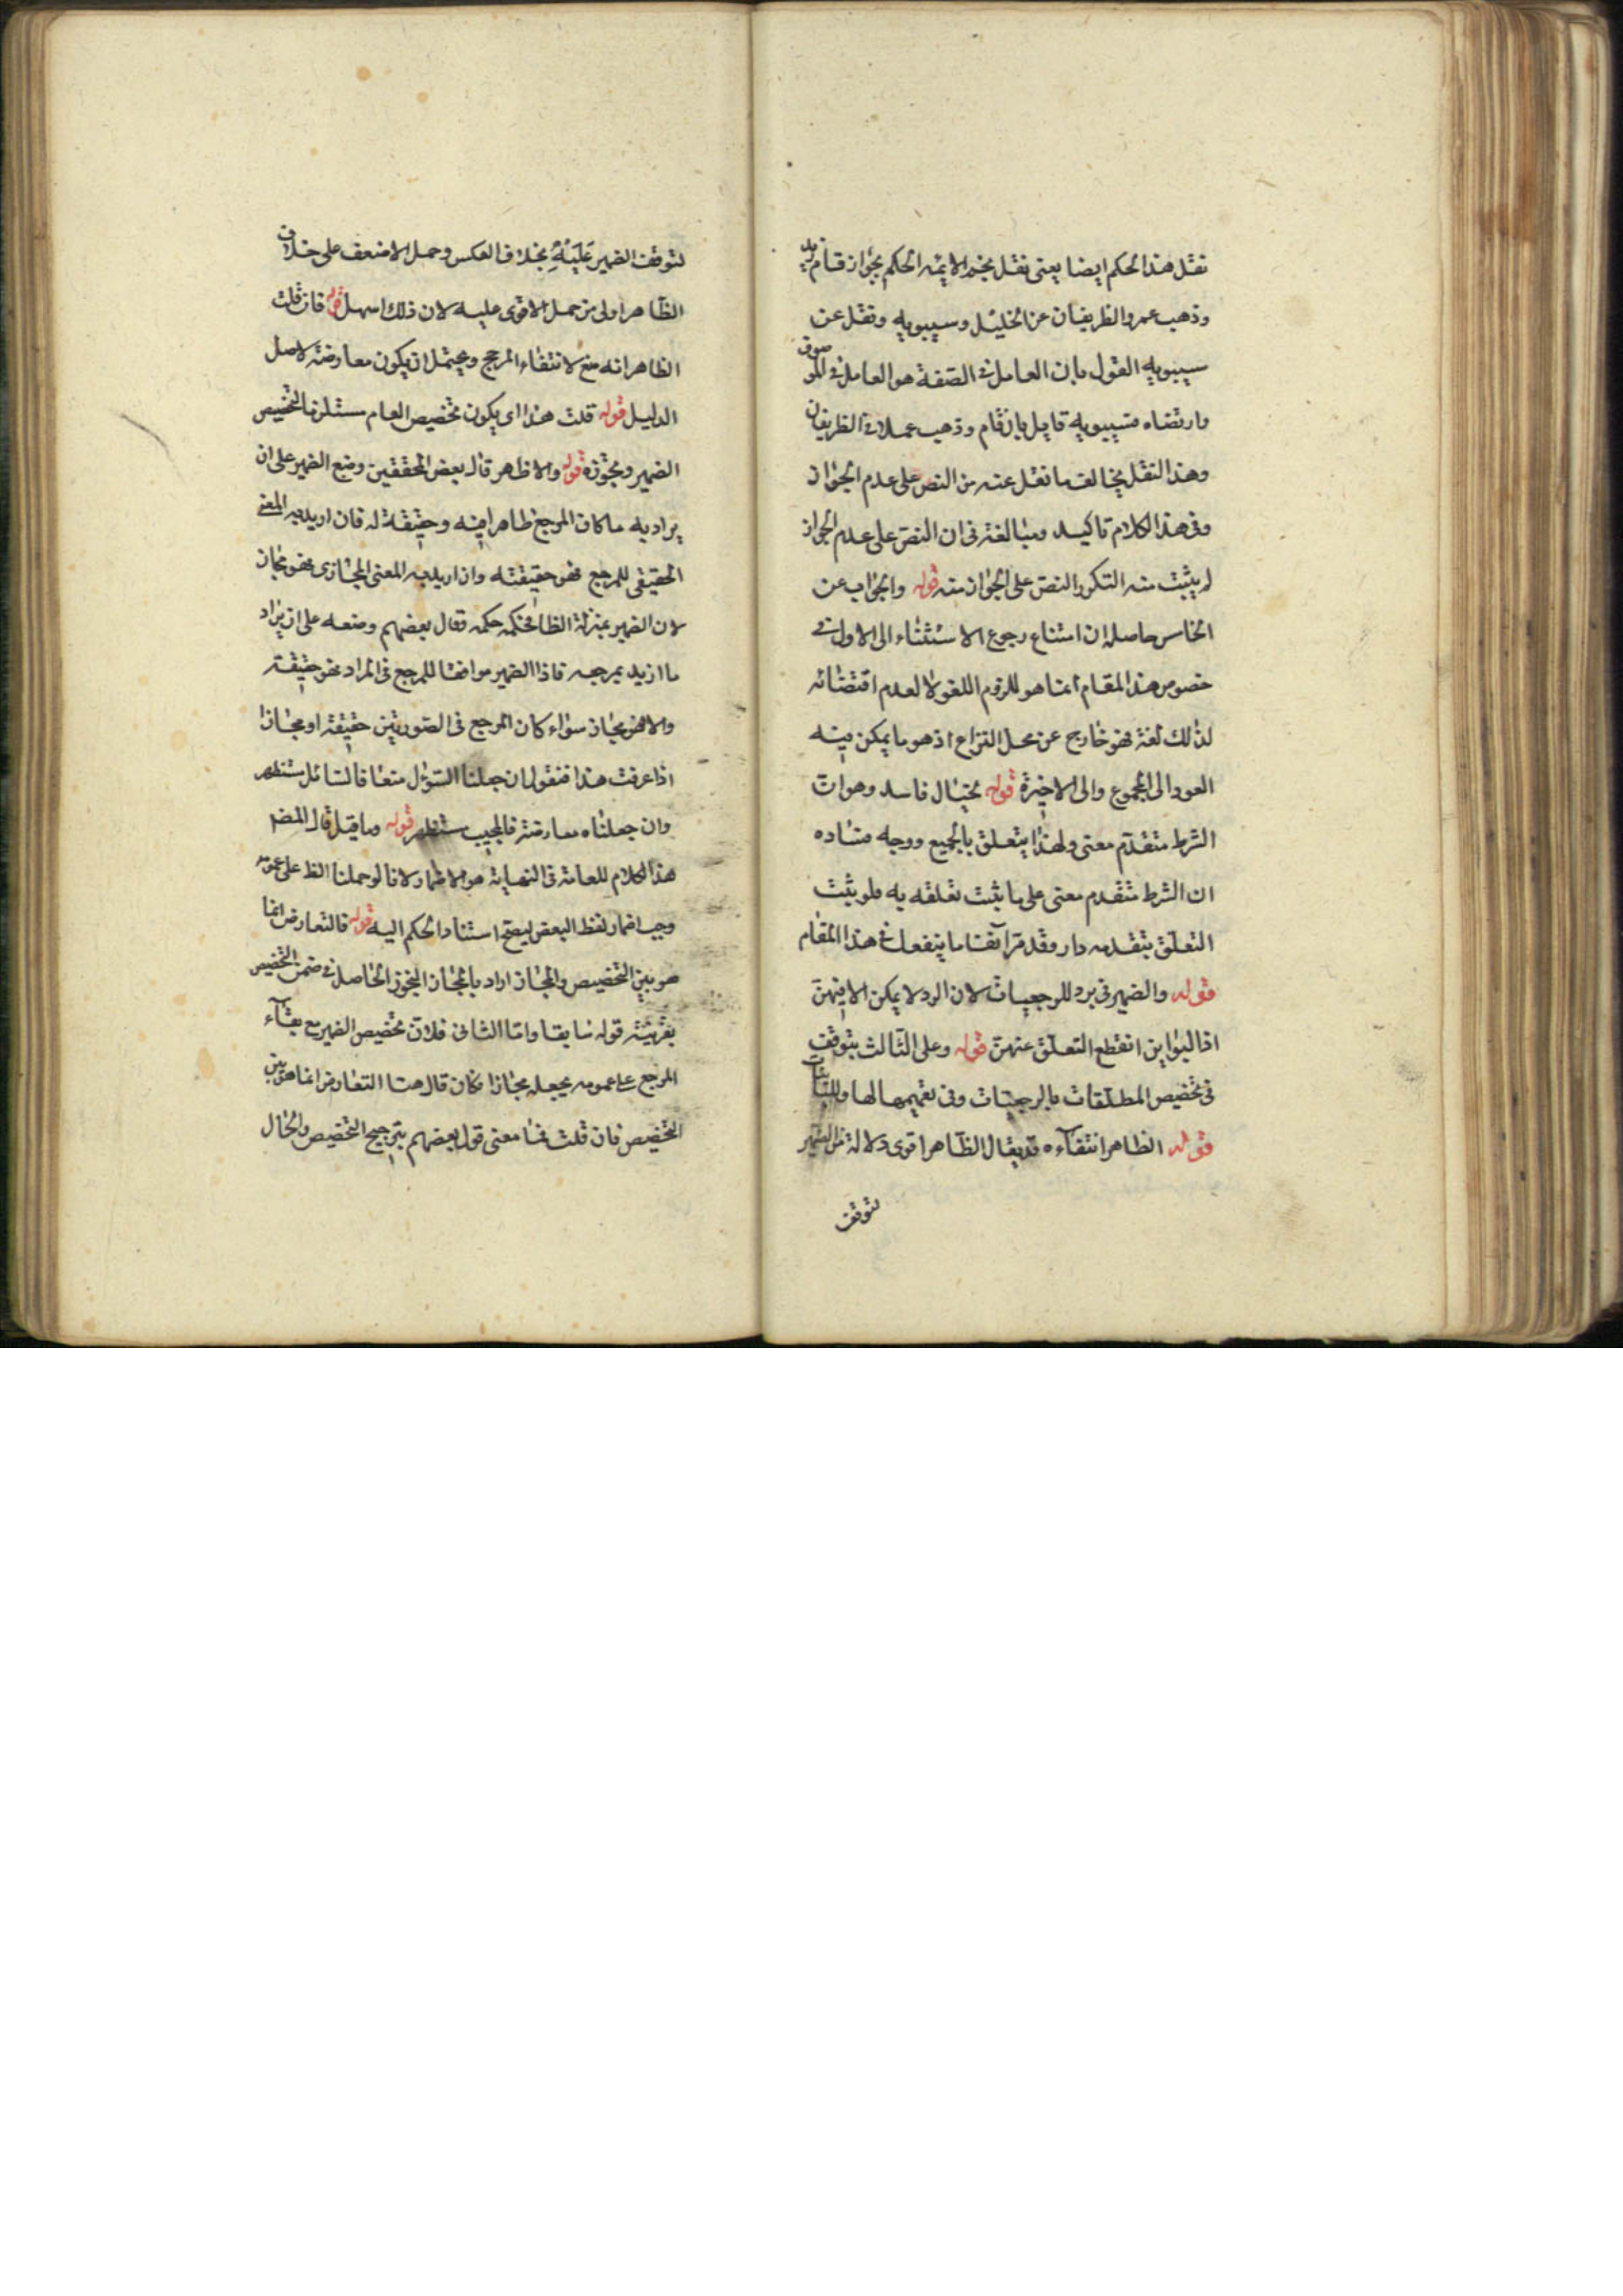 نقل هذا الحكم ايضا يعنى نقل نجم الايمه الحكم بجواز قام زيد
وذهب عمرو الظريفان عن الخليل وسيبويه ونقل عن
سيبويه القول بان العامل فى الصفة هو العامل فى الموصوف
وارتضاه فسيبويه قايل بان قام وذهب عملا فى الظريفان
وهذا النقل يخالف ما نقل عنه من النص على عدم الجواز
وفى هذا الكلام تاكيد ومبالغة فى ان النص على عدم الجواز
لم يثبت منه النص على الجواز منه قوله والجواب عن
الخامس حاصله ان امتناع رجوع الاستثناء الى الاول فى
خصوص هذا المقام انما هو للزوم اللغو لا لعدم اقتضائه
لذلك لغة فهو خارج عن محل النزاع اذ هو ما يمكن فيه
العود الى المجموع والى الاخيرة قوله بخيال فاسد وهو ان
الشرط متقدم معنى ولهذا يتعلق بالجميع ووجه فساده
ان الشرط متقدم معنى على ما يثبت تعلقه به فلو يثبت
التعلق بتقدمه دار وقد مر آنفا ما ينفعك فى هذا المقام
قوله والضمير فى برد للرجعيات لان الرد لا يمكن الا فيهن
اذ البواين انقطع التعلق عنهن قوله وعلى الثالث يتوقف
فى تخصيص المطلقات بالرجعيات وفى تعميمها لها وللباينات
قوله الظاهر انتفآءه قد يقال الظاهر اقوى دلالة من الضمير
لتوقف
لتوقف الضمير عَلَيْهِ بخلاف العكس وحمل الاضعف على خلاف
الظاهر اولى من حمل الاقوى عليه لان ذلك اسهل قوله فان قلت
الظاهر انه منع لانتفاء المرجح ويحتمل ان يكون معارضة لاصل
الدليل قوله قلت هذا اى يكون تخصيص العام مستلزما لتخصيص
الضمير ومجوزه قوله والاظهر قال بعض المحققين وضع الضمير على ان
يراد به ما كان المرجع ظاهرا فيه وحقيقة له فان اريد به المعنى
الحقيقى للمرجع فهو حقيقته وان اريد به المعنى المجازى فهو مجاز
لان الضمير بمنزلة الظا فحكمه حكمه وقال بعضهم وضعه على ان يراد
ما اريد بمرجعه فاذا الضمير موافقا للمرجع فى المراد فهو حقيقة
والا فهو مجاز سواء كان المرجع فى الصورتين حقيقة او مجازا
اذا عرفت هذا فنقول ان جعلنا السؤل منعا فالسائل مستظهر
وان جعلناه معارضة فالمجيب مستظهر قوله وما قيل قال المضم
هذا الكلام للعلامة فى النهاية هو الاضمار لانا لو حملنا الظ على عمومه
وجب اضمار لفظ البعض ليصح استناد الحكم اليه قوله فالتعارض انما
هو بين التخصيص والمجاز اراد بالمجاز التجوز الحاصل فى ضمن التخصيص
بقرينة قوله سابقا واما الثانى فلان تخصيص الضمير مع بقآء
المرجع على عمومه يجعله مجازا فكان قال هنا التعارض انما هو بين
التخصيص فان قلت فما معنى قول بعضهم بترجيح التخصيص والحال